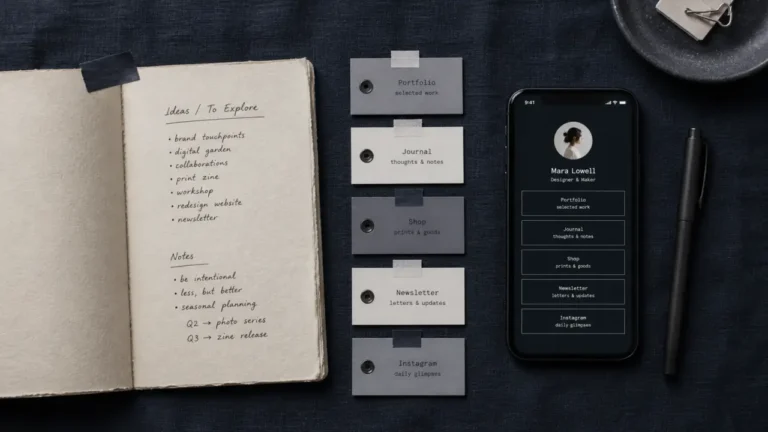 Ideas / To Explore
• brand touchpoints
• digital garden
• collaborations
• print zine
• workshop
• redesign website
• newsletter
Notes
• be intentional
• less, but better
• seasonal planning
Q2 → photo series
Q3 → zine release
Portfolio
selected work
Journal
thoughts & notes
Shop
prints & goods
Newsletter
letters & updates
Instagram
daily glimpses
9:41
Mara Lowell
Designer & Maker
Portfolio
selected work
Journal
thoughts & notes
Shop
prints & goods
Newsletter
letters & updates
Instagram
daily glimpses